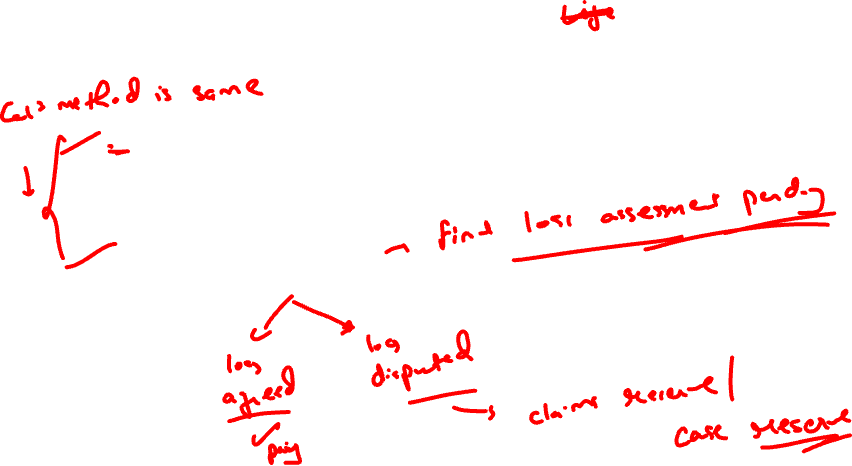 Life
method is same
final loss assessment pending
loss
agreed
pay
loss
disputed
claims reserve /
case reserve